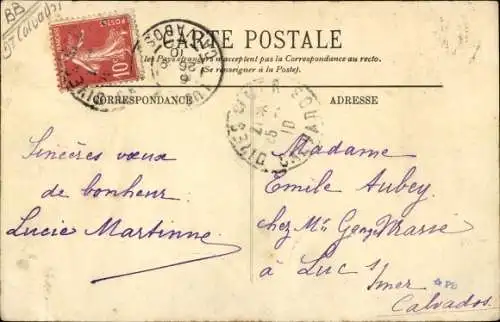 BB
Calvados
10c
CARTE POSTALE
pays étrangers n'acceptent pas la Correspondance au recto.
(Se renseigner à la Poste).
CORRESPONDANCE
ADRESSE
Sincères vœux
de bonheur
Lucie Martinne
Madame
Emile Aubey
chez Mr Georges Masse
à Luc s/
mer
Calvados